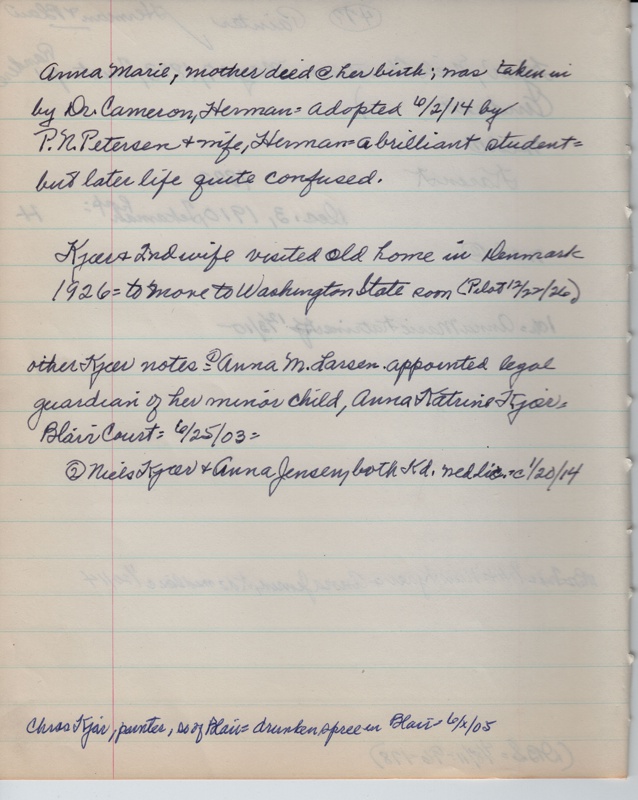 Anna Marie, mother died @ her birth; was taken in
by Dr. Cameron, Herman = adopted 6/2/14 by
P.N. Petersen & wife, Herman = a brilliant student =
but later life quite confused.
Kjær & 2nd wife visited old home in Denmark
1926 = to move to Washington State soon (Pilot 12/22/26)
other Kjær notes = ① Anna M. Larsen appointed legal
guardian of her minor child, Anna Katrine Kjær =
Blair Court = 6/25/03 =
② Niels Kjær & Anna Jensen, both Kd. wed lic. = c 1/20/14
Chras Kjær, painter, so of Blair = drunken spree in Blair = 6/x/05